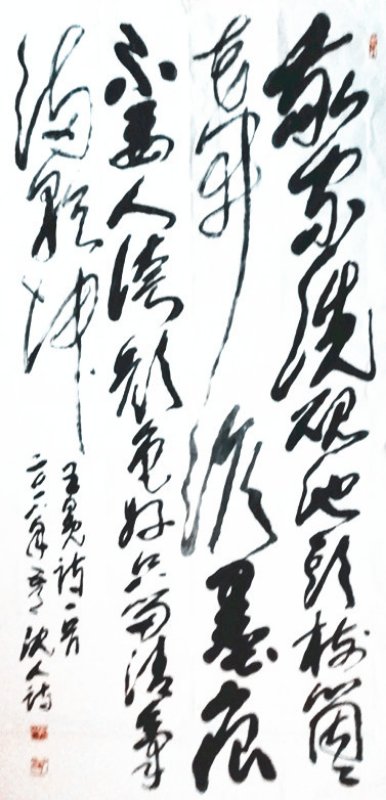 我家洗硯池頭樹箇々
花開淡墨痕
不要人誇顏色好只留清氣
滿乾坤
王冕詩一首
二〇一年